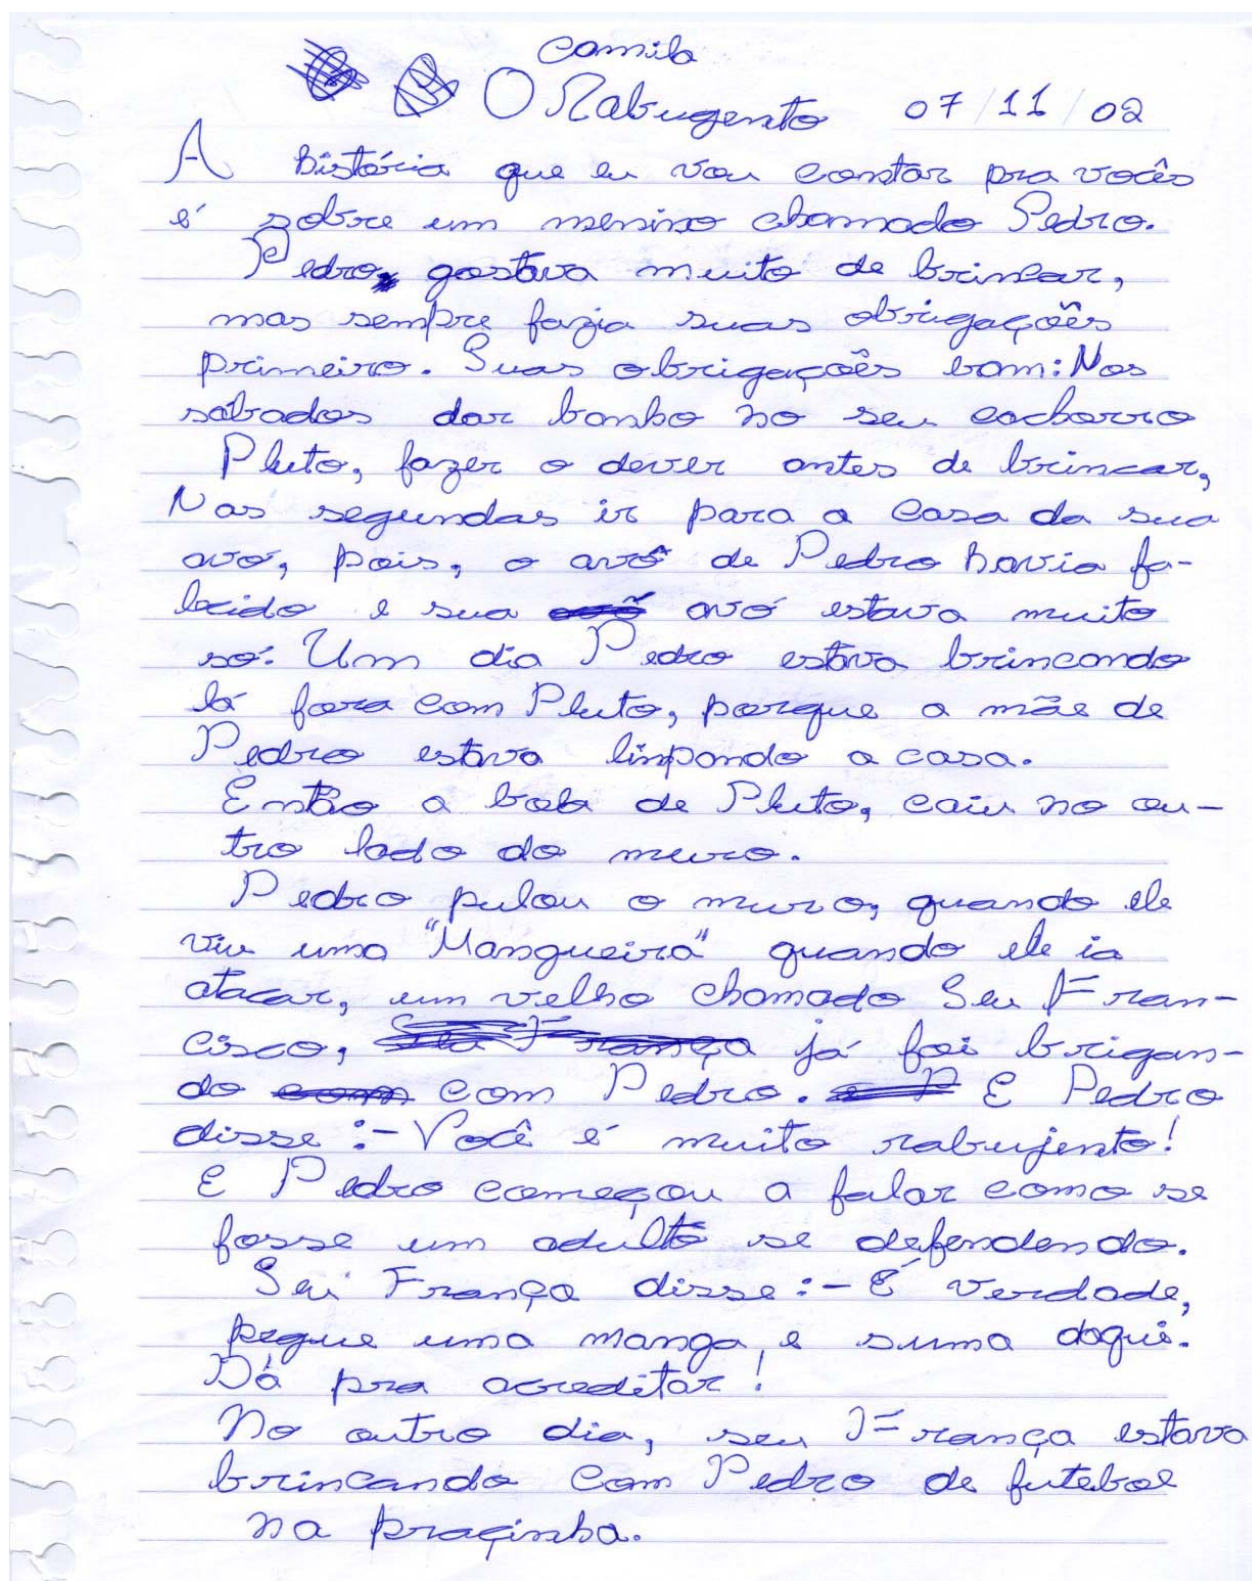 Camila
O Rabugento 07/11/02
A história que eu vou contar pra vocês
é sobre um menino chamado Pedro.
Pedro gostava muito de brincar,
mas sempre fazia suas obrigações
primeiro. Suas obrigações eram: Nos
sábados dar banho no seu cachorro
Pluto, fazer o dever antes de brincar,
Nas segundas ir para a casa da sua
avó, pois, o avô de Pedro havia fa-
lecido e sua avó estava muito
só. Um dia Pedro estava brincando
lá fora com Pluto, porque a mãe de
Pedro estava linpando a casa.
Então a bola de Pluto, caiu no ou-
tro lado do muro.
Pedro pulou o muro, quando ele
viu uma "Mangueira" quando ele ia
atacar, um velho chamado Seu Fran-
cisco, já foi brigan-
do com Pedro. E Pedro
disse :- Você é muito rabujento!
E Pedro começou a falar como se
fosse um adulto se defendendo.
Seu França disse :- É verdade,
pegue uma manga, e suma daqui.
Dá pra acreditar!
No outro dia, seu França estava
brincando com Pedro de futebol
na praçinha.